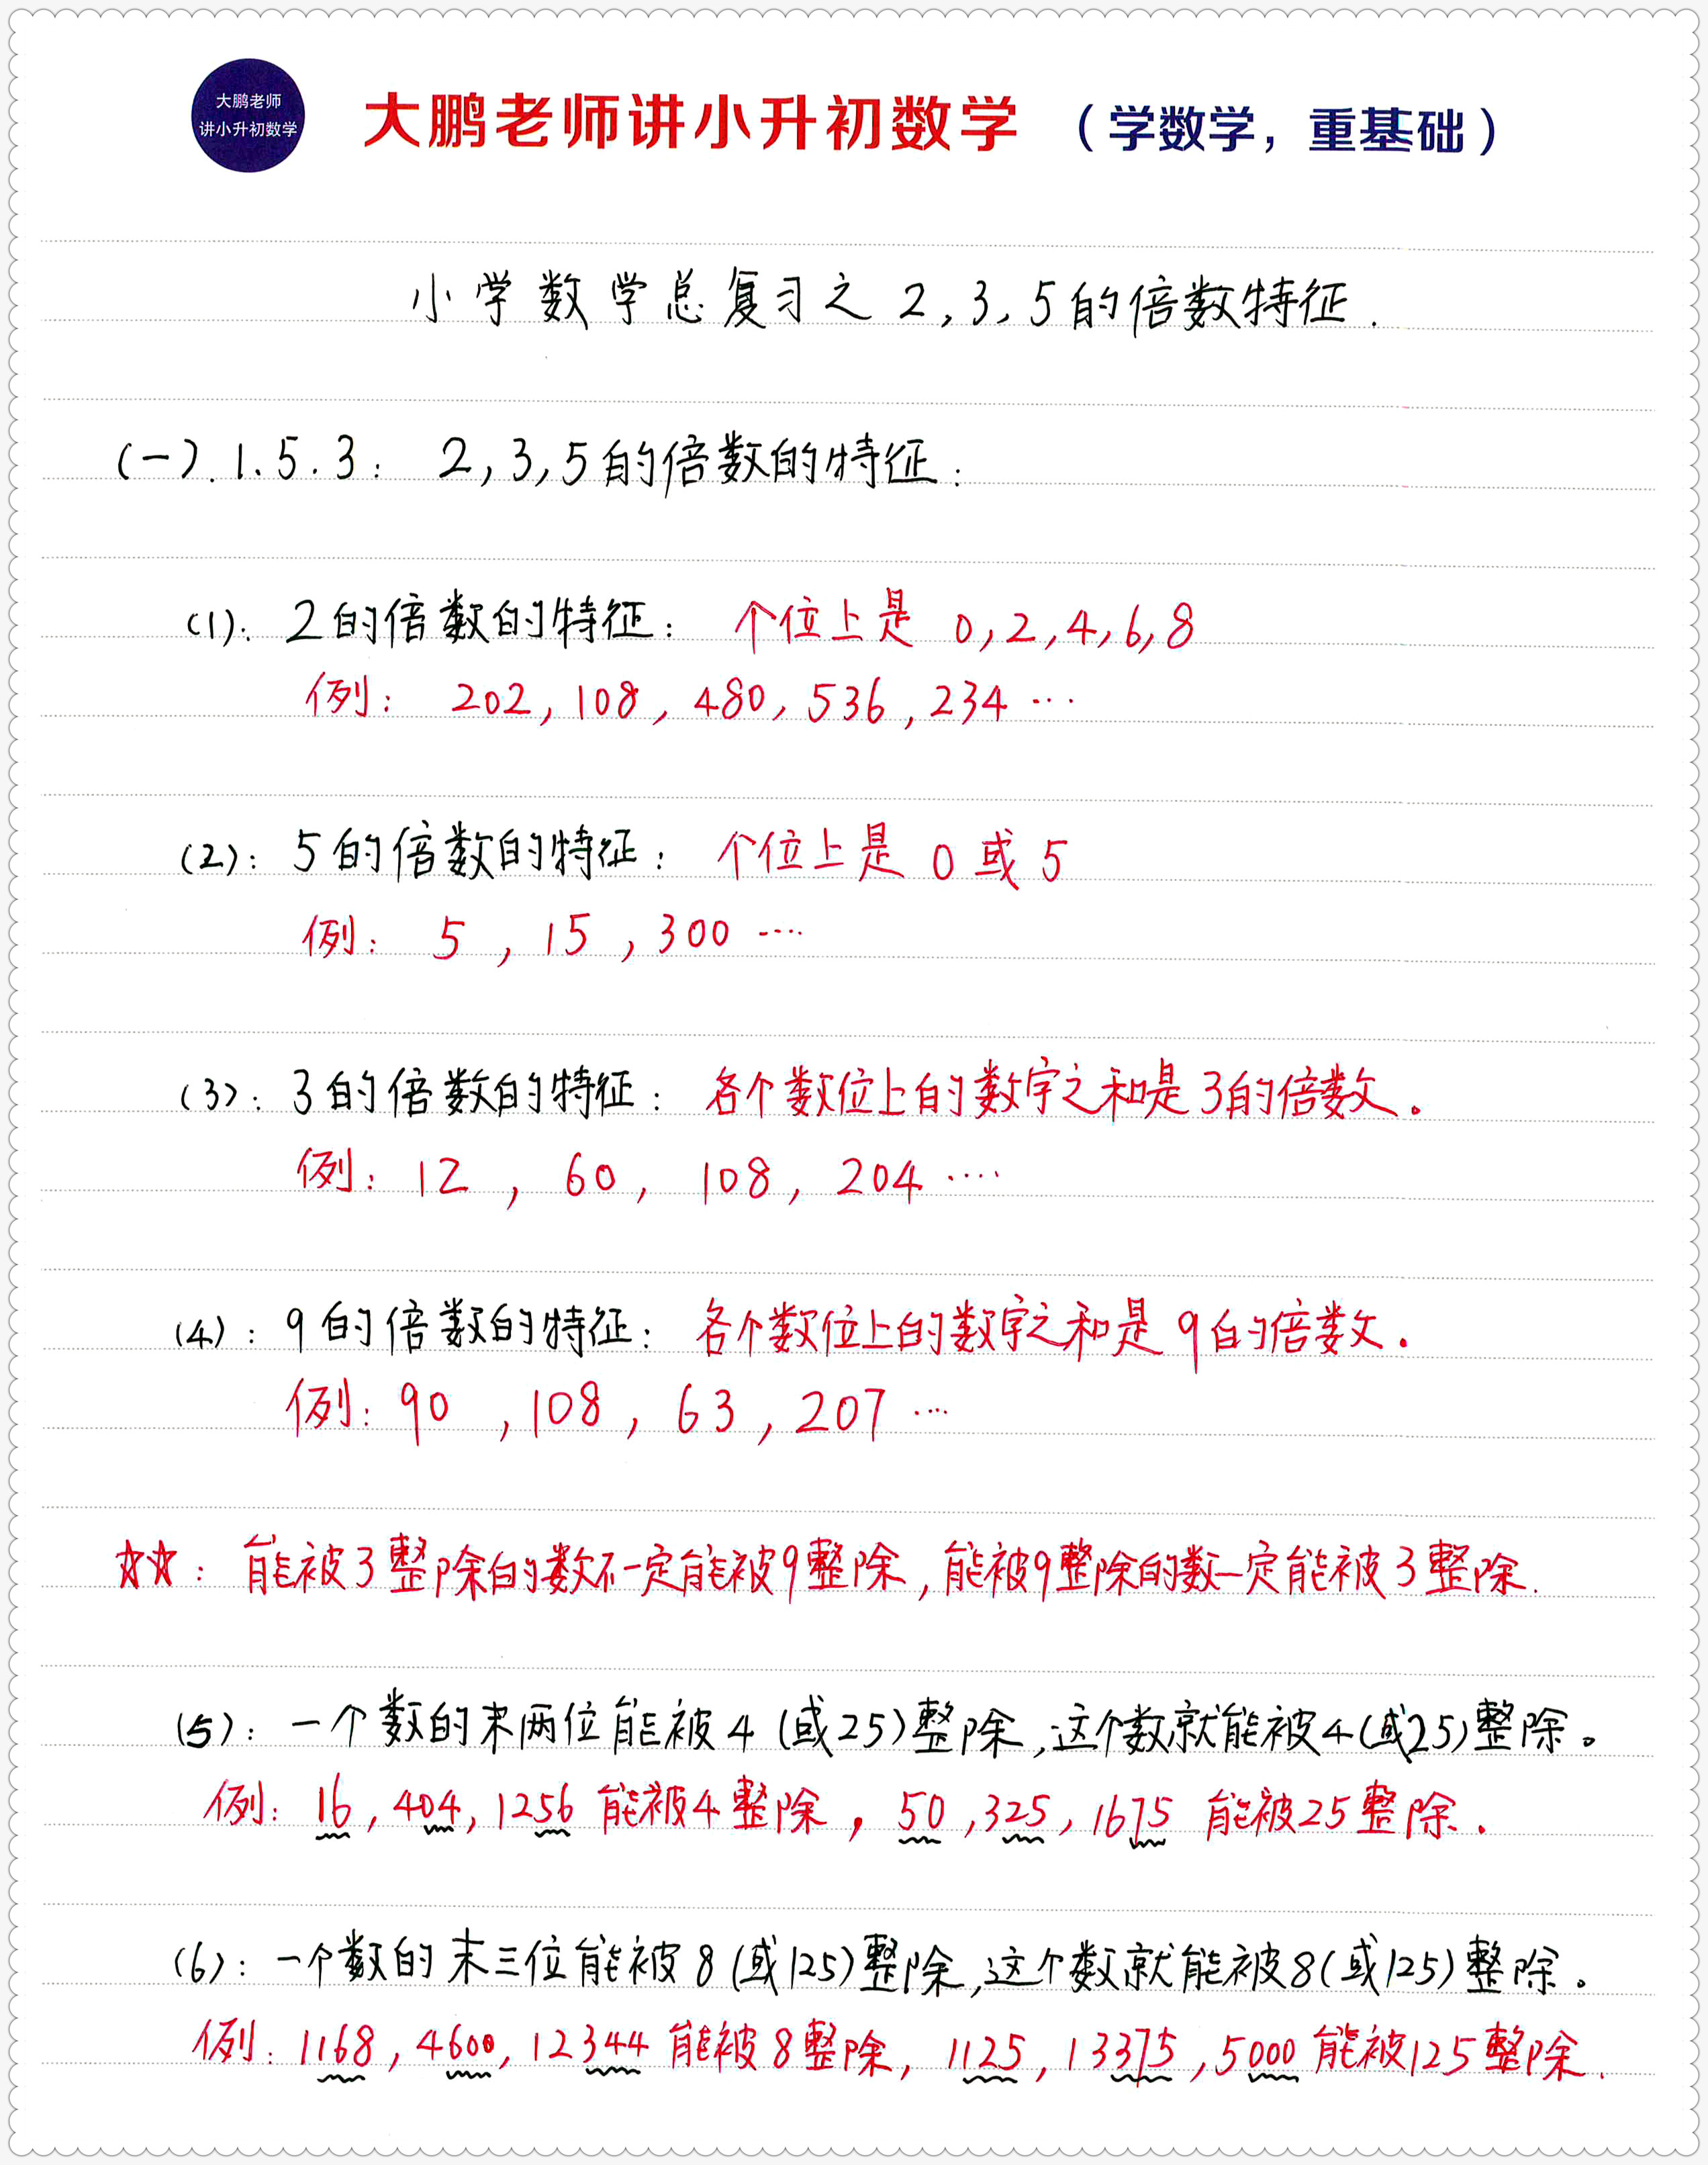 大鹏老师
讲小升初数学
大鹏老师讲小升初数学 （学数学，重基础）
小学数学总复习之 2,3,5的倍数特征.
(一).1.5.3: 2,3,5的倍数的特征:
(1): 2的倍数的特征: 个位上是 0,2,4,6,8
例: 202,108,480,536,234…
(2): 5的倍数的特征: 个位上是 0 或 5
例: 5,15,300…
(3): 3的倍数的特征: 各个数位上的数字之和是3的倍数。
例: 12,60,108,204…
(4): 9的倍数的特征: 各个数位上的数字之和是9的倍数.
例: 90,108,63,207…
☆☆: 能被3整除的数不一定能被9整除,能被9整除的数一定能被3整除.
(5): 一个数的末两位能被4(或25)整除,这个数就能被4(或25)整除。
例: 16,404,1256 能被4整除,50,325,1675 能被25整除.
(6): 一个数的末三位能被8(或125)整除,这个数就能被8(或125)整除。
例: 1168,4600,12344 能被8整除,1125,13375,5000 能被125整除.